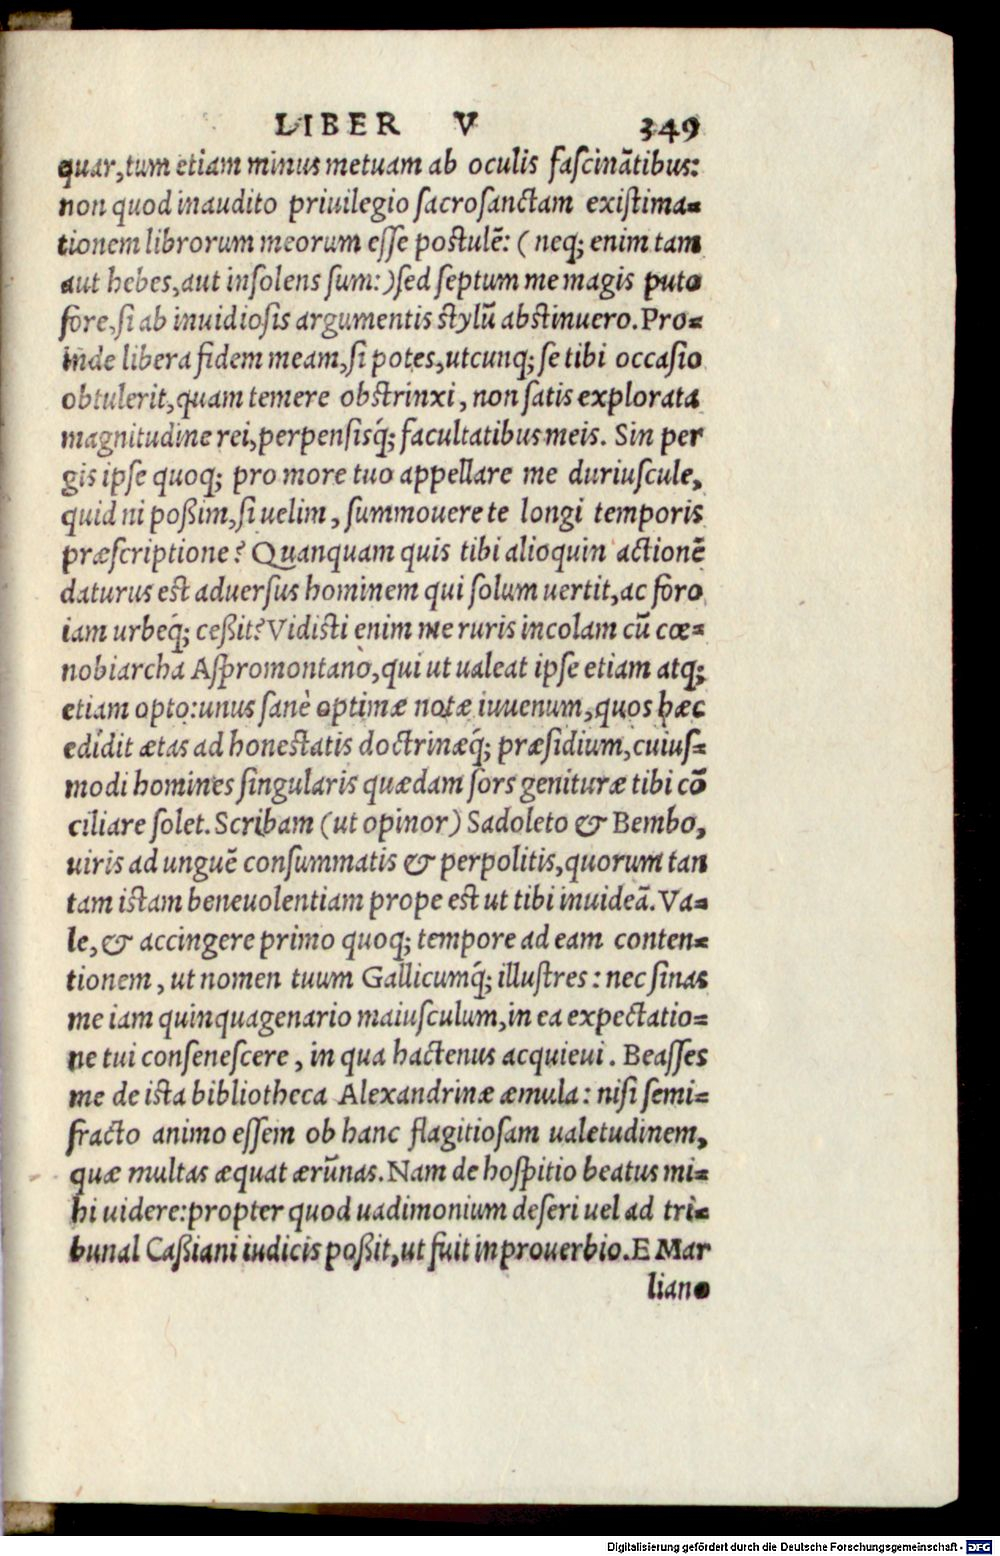 LIBER V 349
quar, tum etiam minus metuam ab oculis fascinãtibus:
non quod inaudito priuilegio sacrosanctam existima-
tionem librorum meorum esse postulẽ: ( neq; enim tam
aut hebes, aut insolens sum:) sed septum me magis puto
fore, si ab inuidiosis argumentis stylũ abstinuero. Pro-
inde libera fidem meam, si potes, utcunq; se tibi occasio
obtulerit, quam temere obstrinxi, non satis explorata
magnitudine rei, perpensisq́; facultatibus meis. Sin per
gis ipse quoq; pro more tuo appellare me duriuscule,
quid ni poßim, si uelim, summouere te longi temporis
præscriptione? Quanquam quis tibi alioquin actionẽ
daturus est aduersus hominem qui solum uertit, ac foro
iam urbeq́; ceßit? Vidisti enim me ruris incolam cũ cœ-
nobiarcha Aspromontano, qui ut ualeat ipse etiam atq;
etiam opto: unus sanè optimæ notæ iuuenum, quos hæc
edidit ætas ad honestatis doctrinæq́; præsidium, cuius-
modi homines singularis quædam sors genituræ tibi cõ
ciliare solet. Scribam (ut opinor) Sadoleto & Bembo,
uiris ad unguẽ consummatis & perpolitis, quorum tan
tam istam beneuolentiam prope est ut tibi inuideã. Va-
le, & accingere primo quoq; tempore ad eam conten-
tionem, ut nomen tuum Gallicumq́; illustres: nec sinas
me iam quinquagenario maiusculum, in ea expectatio-
ne tui consenescere, in qua hactenus acquieui. Beasses
me de ista bibliotheca Alexandrinæ æmula: nisi semi-
fracto animo essem ob hanc flagitiosam ualetudinem,
quæ multas æquat ærũnas. Nam de hospitio beatus mi-
hi uidere: propter quod uadimonium deseri uel ad tri-
bunal Caßiani iudicis poßit, ut fuit in prouerbio. E Mar
liano
Digitalisierung gefördert durch die Deutsche Forschungsgemeinschaft - DFG